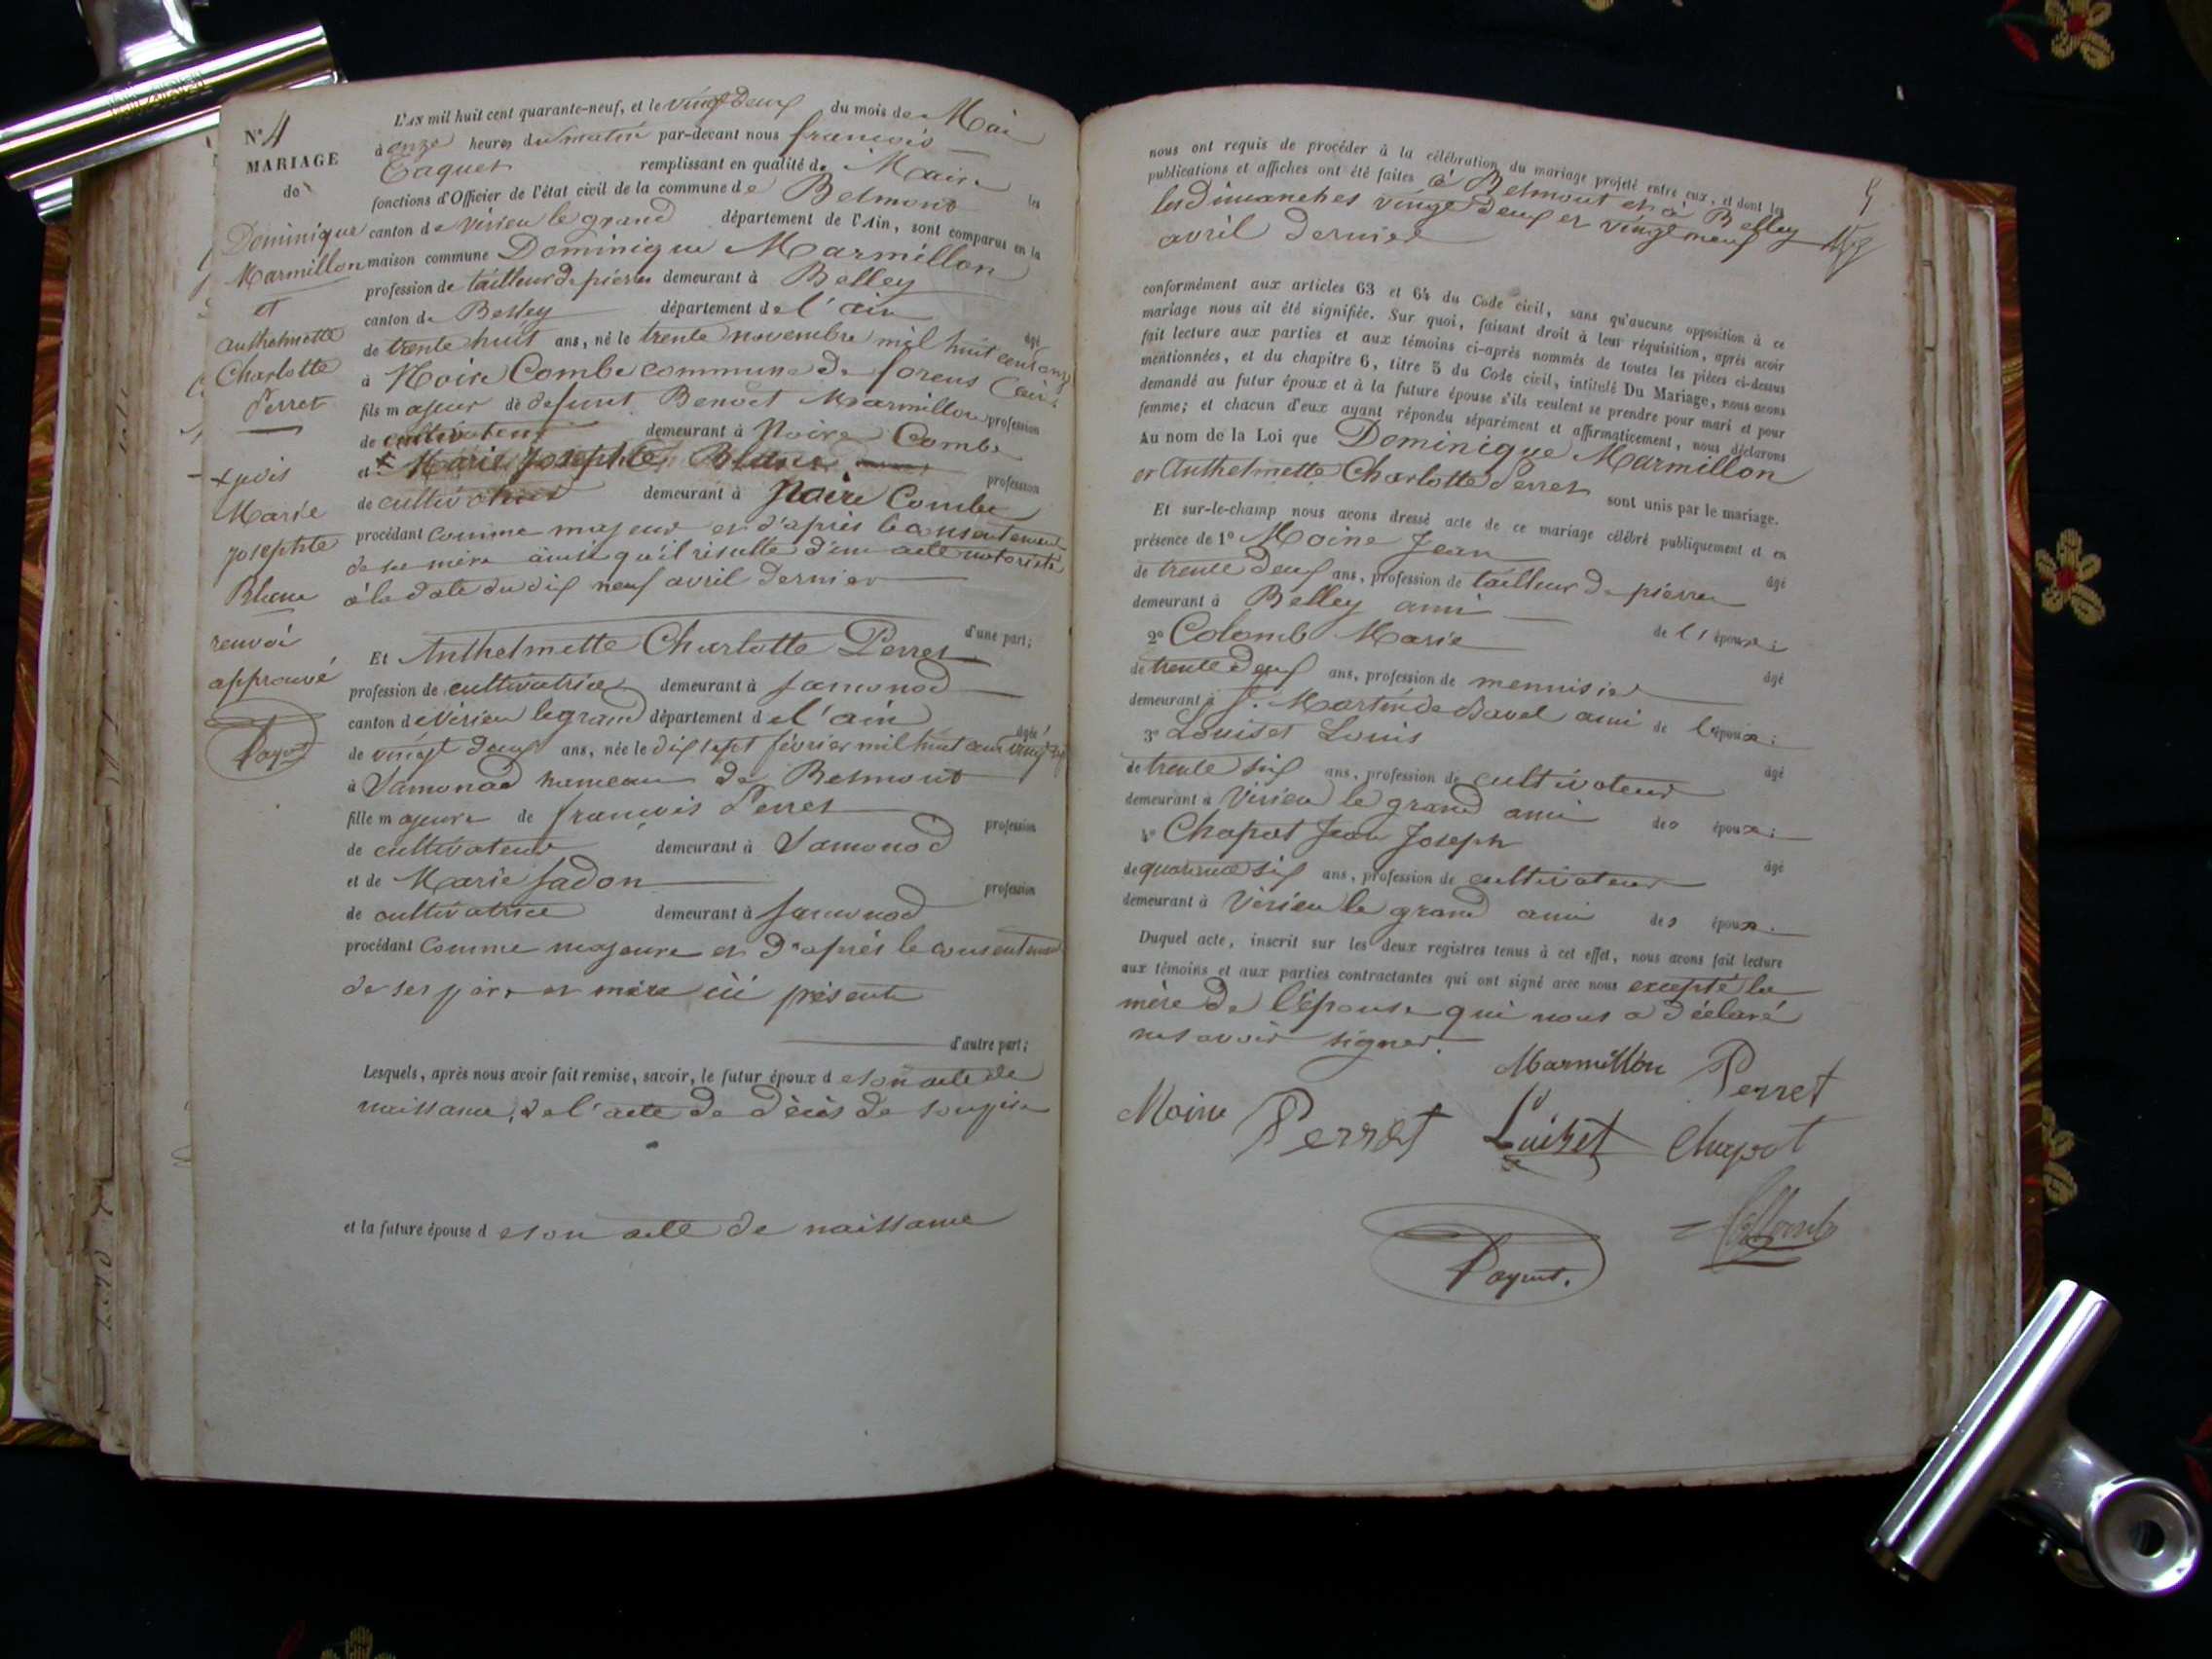 N° 4
MARIAGE
de
Dominique
Marmillon
et
Anthelmette
Charlotte
Perret
+ puis
Marie
Josephte
Blanc
renvoi
approuvé
L'AN mil huit cent quarante-neuf, et le vingt deux du mois de Mai
à onze heures du matin par-devant nous françois
remplissant en qualité de Maire les
fonctions d'Officier de l'état civil de la commune de Belmont
canton de Virieu le grand département de l'Ain, sont comparus en la
maison commune Dominique Marmillon
profession de tailleur de pierres demeurant à Belley
canton de Belley département de l'ain âgé
de trente huit ans, né le trente novembre mil huit cent onze
à Noire Combe commune de forens (ain)
fils majeur de defunt Benoit Marmillon profession
de cultivateur demeurant à Noire Combe
et + Marie Josephte Blanc profession
de cultivatrice demeurant à Noire Combe
procédant comme majeur et d'après le consentement
de sa mère ainsi qu'il résulte d'un acte notorieté
à la date du dix neuf avril dernier
d'une part;
Et Anthelmette Charlotte Perret
profession de cultivatrice demeurant à Samonod
canton de Virieu le grand département de l'ain âgée
de vingt deux ans, née le dix sept février mil huit cent vingt
à Samonod hameau de Belmont
fille majeure de françois Perret profession
de cultivateur demeurant à Samonod
et de Marie Jadon profession
de cultivatrice demeurant à Samonod
procédant comme majeure et d'après le consentement
de ses père et mère ici présents
d'autre part;
Lesquels, après nous avoir fait remise, savoir, le futur époux de son acte de
naissance, de l'acte de décès de son père
et la future épouse de son acte de naissance
5
nous ont requis de procéder à la célébration du mariage projeté entre eux, et dont les
publications et affiches ont été faites à Belmont et à Belley
les dimanches vingt deux et vingt neuf
avril dernier
conformément aux articles 63 et 64 du Code civil, sans qu'aucune opposition à ce
mariage nous ait été signifiée. Sur quoi, faisant droit à leur réquisition, après avoir
fait lecture aux parties et aux témoins ci-après nommés de toutes les pièces ci-dessus
mentionnées, et du chapitre 6, titre 5 du Code civil, intitulé Du Mariage, nous avons
demandé au futur époux et à la future épouse s'ils veulent se prendre pour mari et pour
femme; et chacun d'eux ayant répondu séparément et affirmativement, nous déclarons
Au nom de la Loi que Dominique Marmillon
et Anthelmette Charlotte Perret sont unis par le mariage.
Et sur-le-champ nous avons dressé acte de ce mariage célébré publiquement et en
présence de 1° Moine Jean âgé
de trente deux ans, profession de tailleur de pierres
demeurant à Belley ami de l'époux;
2° Colomb Marie âgé
de trente deux ans, profession de menuisier
demeurant à St. Martin de Bavel ami de l'époux;
3° Louiset Louis âgé
de trente six ans, profession de cultivateur
demeurant à Virieu le grand ami des époux;
4° Chapot Jean Joseph âgé
de quarante six ans, profession de cultivateur
demeurant à Virieu le grand ami des époux.
Duquel acte, inscrit sur les deux registres tenus à cet effet, nous avons fait lecture
aux témoins et aux parties contractantes qui ont signé avec nous excepté la
mère de l'épouse qui nous a déclaré
ne savoir signer.
Marmillon Perret
Moine Perret Luiset Chapot